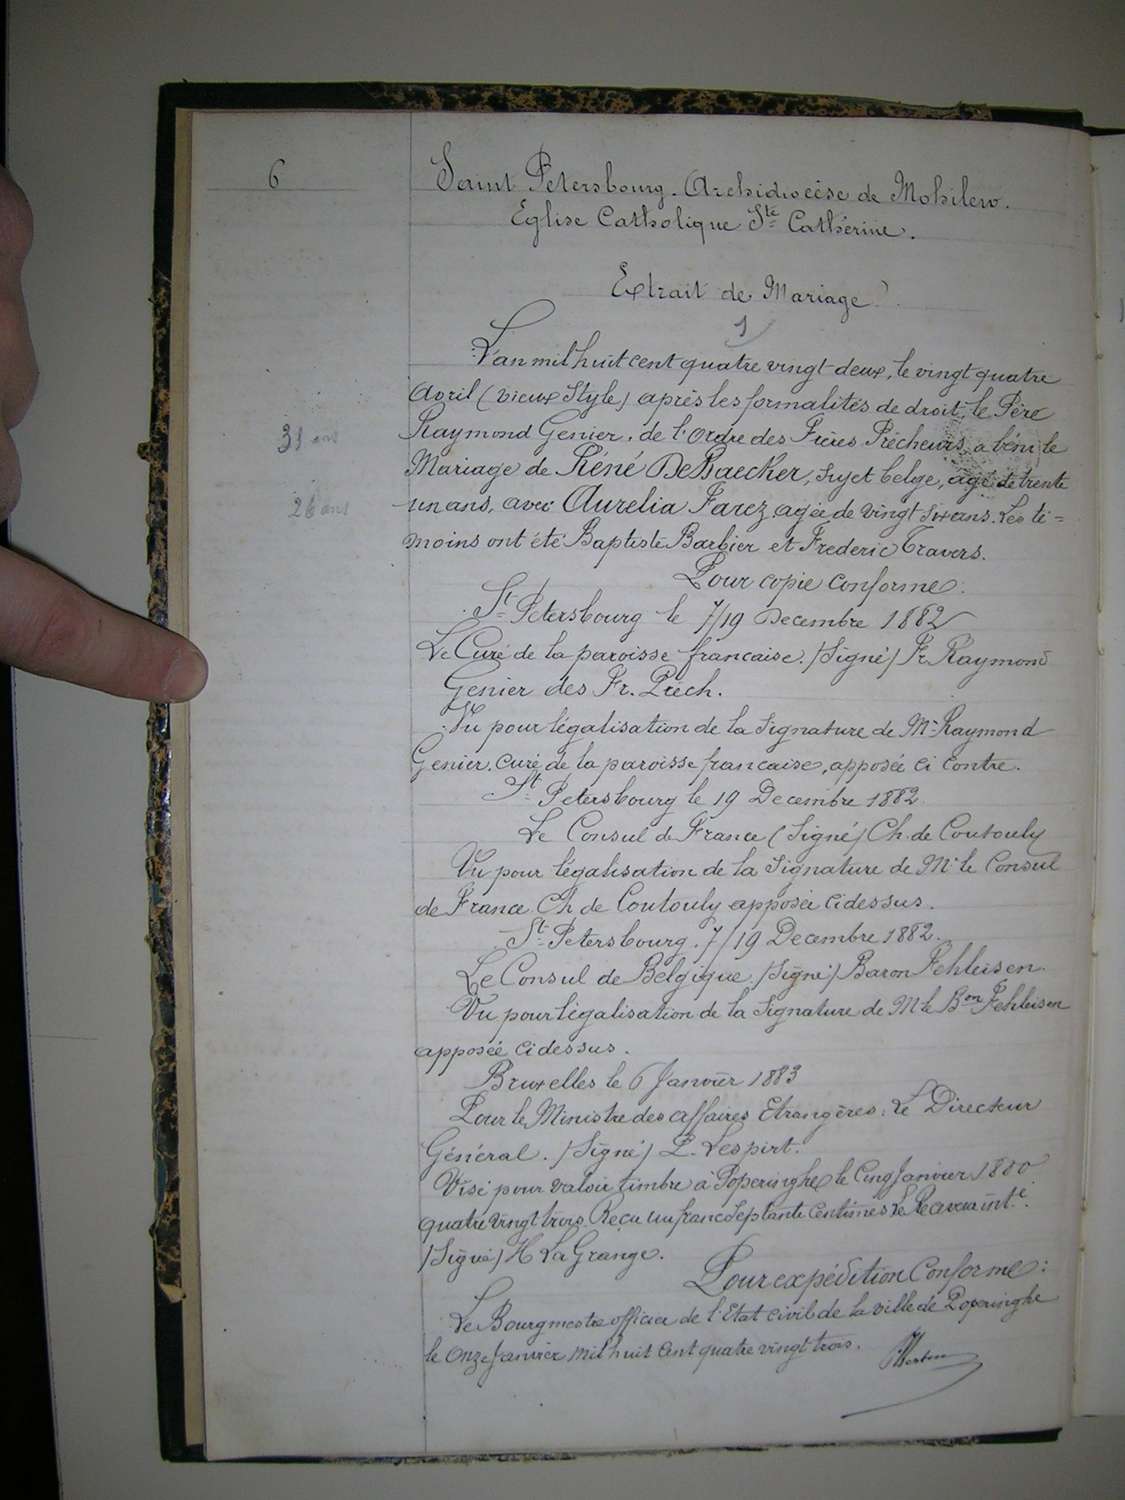 6
Saint Petersbourg. Archidiocèse de Mohilew.
Eglise Catholique Ste Catherine.
Extrait de Mariage
1
L'an mil huit cent quatre vingt deux, le vingt quatre
Avril (vieux Style) après les formalités de droit, le Père
Raymond Genier, de l'Ordre des Frères Prêcheurs, a béni le
31 ans
Mariage de Réné DeBaecker, sujet belge, agé de trente
26 ans
un ans, avec Aurelia Farez agée de vingt six ans. Les té=
moins ont été Baptiste Barbier et Frederic Travers.
Pour copie conforme.
St Petersbourg le 7/19 Decembre 1882
Le Curé de la paroisse francaise. /Signé/ Fr. Raymond
Genier des Fr. Préch.
Vu pour légalisation de la Signature de Mr Raymond
Genier, curé de la paroisse francaise, apposée ci contre.
St Petersbourg le 19 Decembre 1882.
Le Consul de France (Signé) Ch. de Coutouly
Vu pour légalisation de la Signature de Mr le Consul
de France Ch. de Coutouly apposée cidessus.
St Petersbourg. 7/19 Decembre 1882.
Le Consul de Belgique /Signé/ Baron Fehleisen.
Vu pour légalisation de la Signature de M le Bon Fehleisen
apposée cidessus.
Bruxelles le 6 Janvier 1883
Pour le Ministre des affaires Etrangères: Le Directeur
Général. /Signé/ P. Lespirt.
Visé pour valoir timbre à Poperinghe le cinq Janvier 1800
quatre vingt trois. Reçu un franc Septante centimes Le Receveur inté.
/Signé/ H LaGrange.
Pour expédition Conforme:
Le Bourgmestre officier de l'Etat civil de la ville de Poperinghe
le onze Janvier mil huit cent quatre vingt trois.